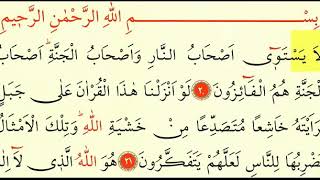 بِسْمِ اللهِ الرَّحْمٰنِ الرَّحٖيمِ
لَا يَسْتَوٖٓى اَصْحَابُ النَّارِ وَاَصْحَابُ الْجَنَّةِؕ اَصْحَابُ
الْجَنَّةِ هُمُ الْفَٓائِزُونَ ﴿٢٠﴾ لَوْ اَنْزَلْنَا هٰذَا الْقُرْاٰنَ عَلٰى جَبَلٍ
لَرَاَيْتَهُ خَاشِعاً مُتَصَدِّعاً مِنْ خَشْيَةِ اللهِؕ وَتِلْكَ الْاَمْثَالُ
نَضْرِبُهَا لِلنَّاسِ لَعَلَّهُمْ يَتَفَكَّرُونَ ﴿٢١﴾ هُوَ اللهُ الَّذٖى لَٓا